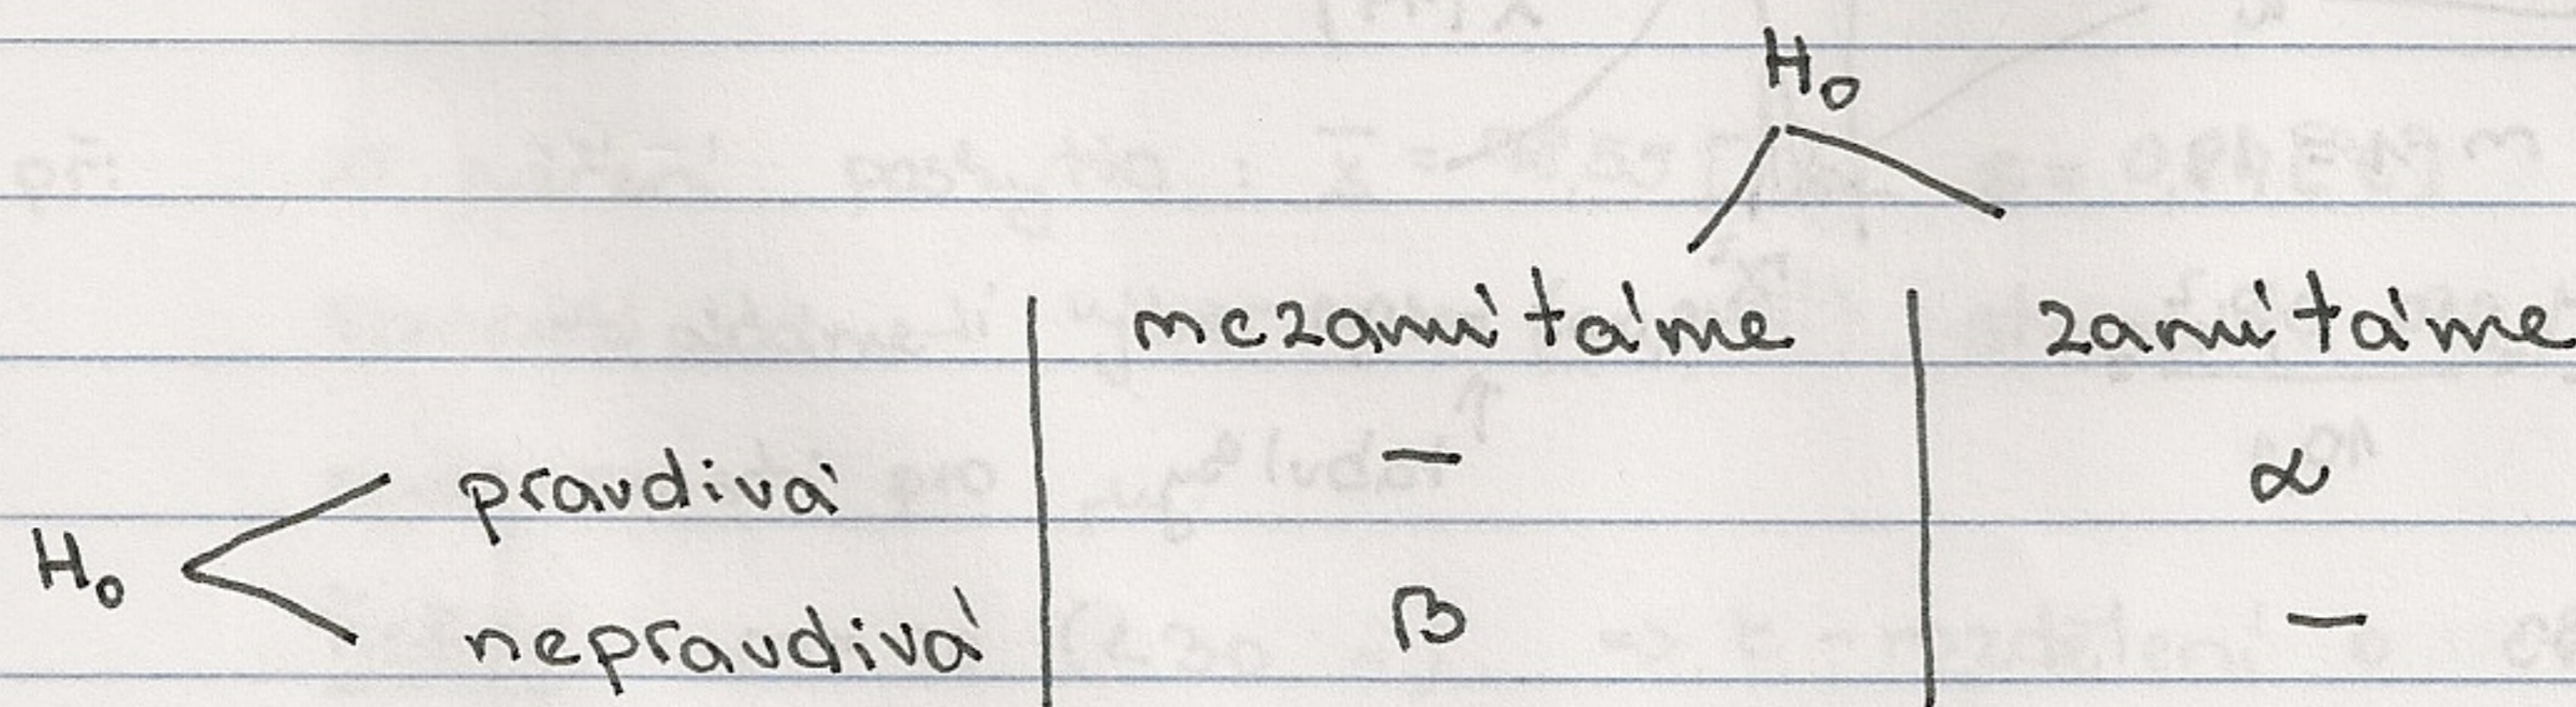 H₀
nezamítáme zamítáme
pravdivá – α
H₀
nepravdivá β –